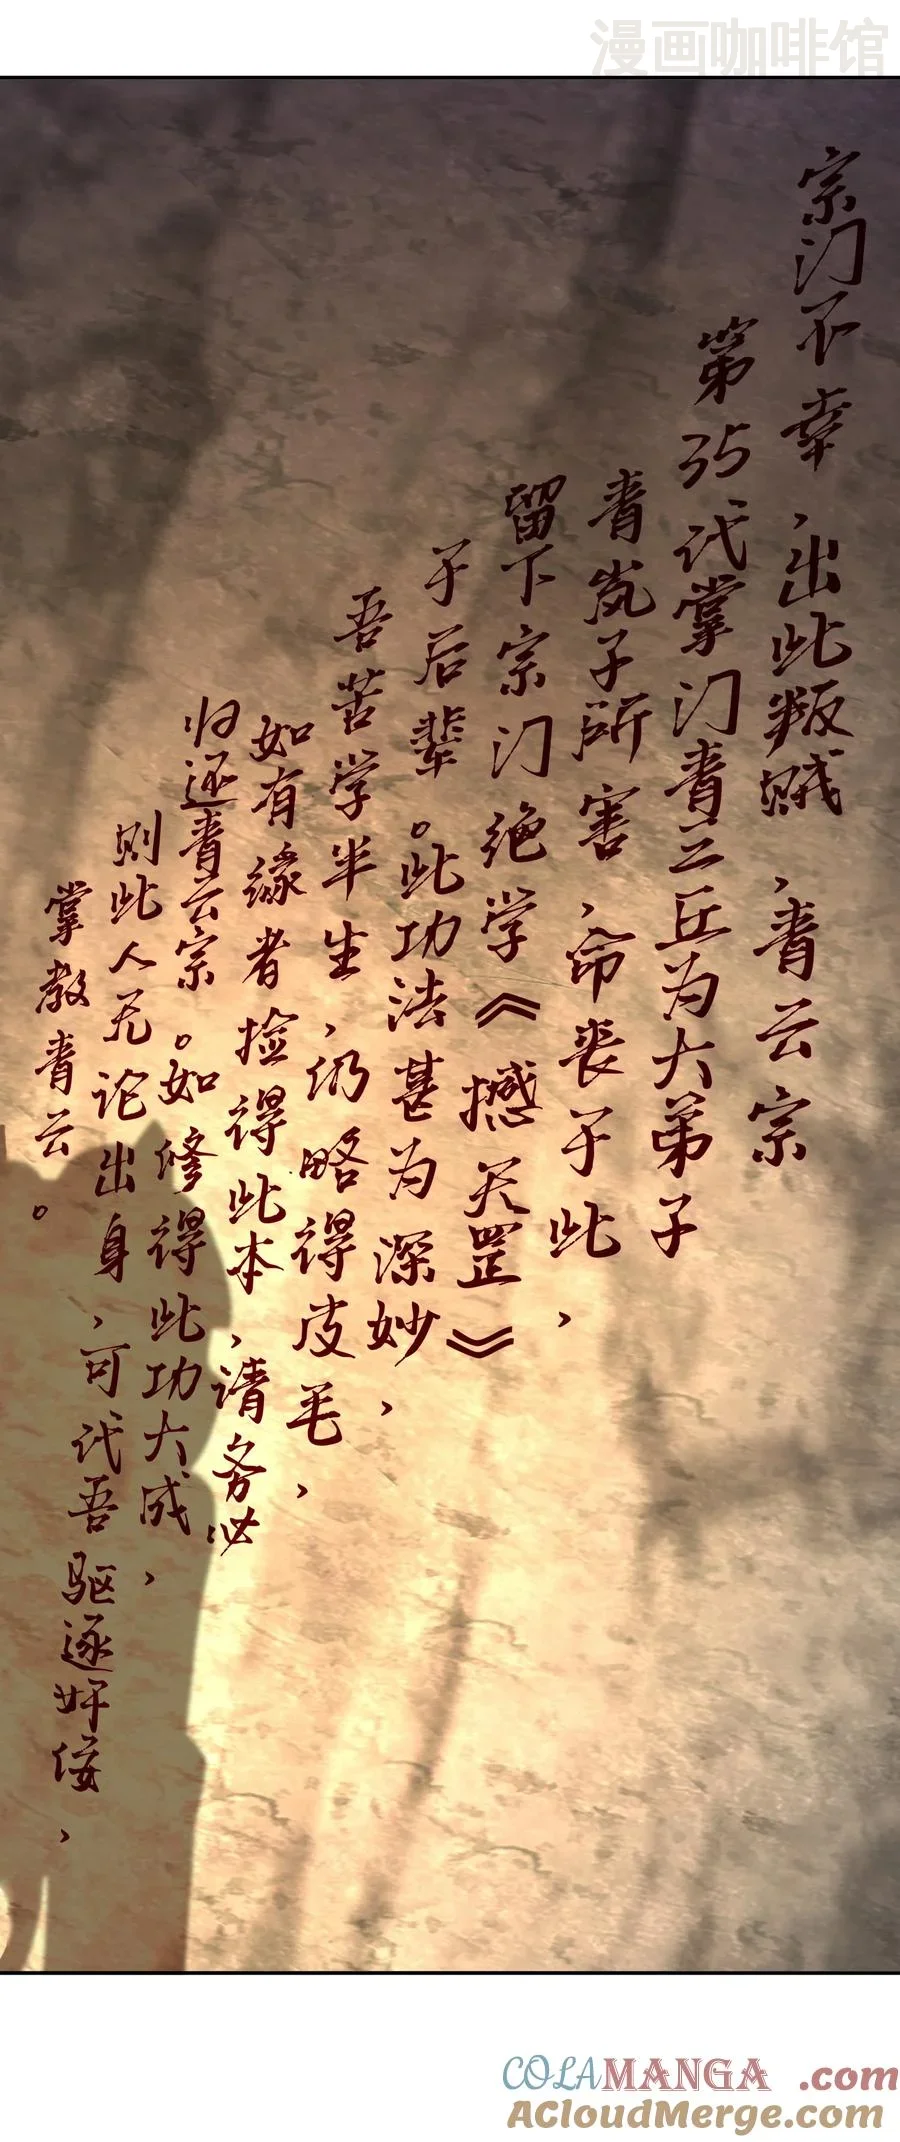 漫画咖啡馆
宗门不幸，出此叛贼，青云宗
第35代掌门青三丘为大弟子
青岚子所害，命丧于此，
留下宗门绝学《撼天罡》
于后辈。此功法甚为深妙，
吾苦学半生，仍略得皮毛，
如有缘者捡得此本，请务必
归还青云宗。如修得此功大成，
则此人无论出身，可代吾驱逐奸佞，
掌教青云。
COLAMANGA.com
ACloudMerge.com